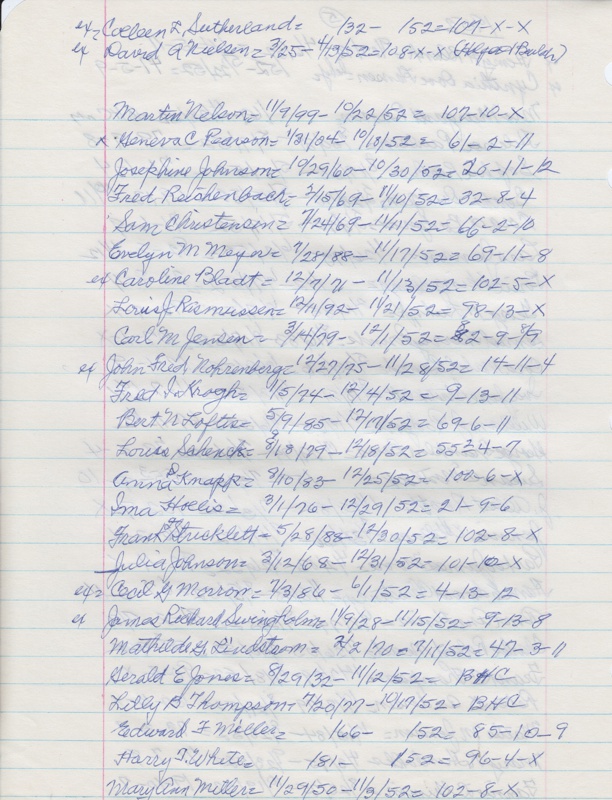 ex= Colleen F. Sutherland= /32- /52=107-X-X
ex David A Nielsen= 3/25- 4/13/52=108-X-X
Martin Nelson= 11/9/99- 10/22/52= 107-10-X
x. Geneva C Pearson= 1/31/04- 10/18/52= 61-2-11
Josephine Johnson= 10/29/60- 10/30/52= 20-11-12
Fred Reichenbach= 2/15/69- 11/10/52= 32-8-4
Sam Christensen= 7/24/69- 11/11/52= 66-2-10
Evelyn M Meyer= 7/28/88- 11/17/52= 69-11-8
ex Caroline Bladt= 12/7/71- 11/13/52= 102-5-X
Louis J. Rasmussen= 12/11/92- 11/21/52= 98-13-X
Carl M Jensen= 3/14/79- 12/1/52= 2-9-
ex John Fred Nohrenberg= 12/27/75- 11/28/52= 14-11-4
Fred I. Krogh= 1/5/74- 12/4/52= 9-13-11
Bert N Loftis= 5/9/85- 12/17/52= 69-6-11
Louisa Schenck= 9/18/79- 12/18/52= 4-7
Anna B Knapp= 8/10/83- 12/25/52= 100-6-X
Ima Hollis= 3/1/76- 12/29/52= 21-9-6
Frank Strucklett= 5/28/88- 12/20/52= 102-8-X
Julia Johnson= 3/12/68- 12/31/52= 101-10-X
ex= Cecil G Morrow= 7/3/86- 6/1/52= 4-13-12
ex James Richard Swingholm= 11/9/28- 11/15/52= 9-13-8
Mathilde G. Lindstrom= 2/2/70- 7/11/52= 47-3-11
Gerald E Jones= 8/29/32- 11/12/52= BHC
Lilly B Thompson= 7/20/77- 10/17/52= BHC
Edward F Miller= /66- /52= 85-10-9
Harry T. White= /81- /52= 96-4-X
Mary Ann Miller= 11/29/50- 11/3/52= 102-8-X